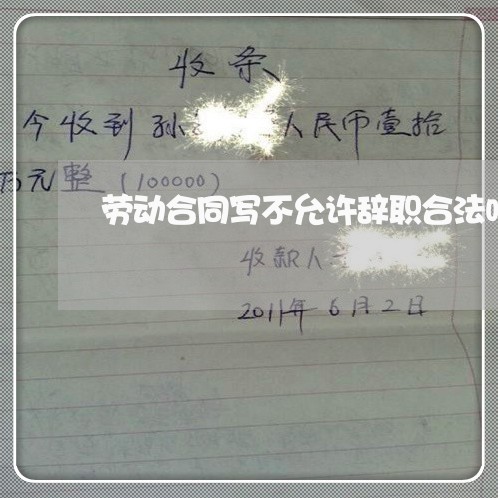 收条
今收到孙 人民币壹拾
万元整（100000）
劳动合同写不允许辞职合法
收款人
2011年6月2日